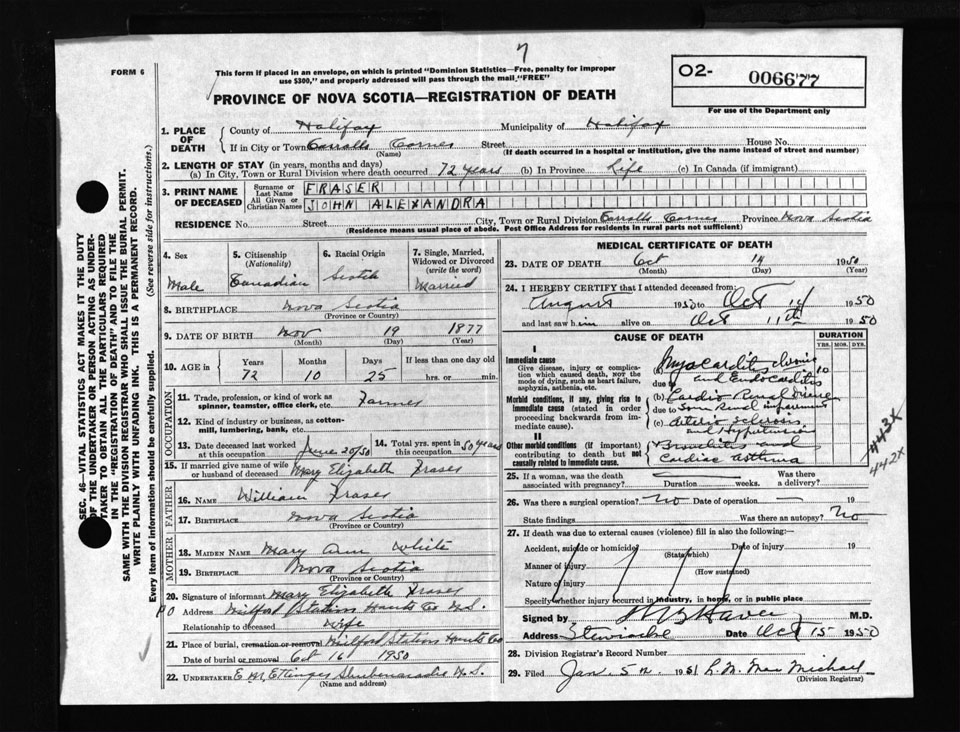 7
FORM 6
This form if placed in an envelope, on which is printed "Dominion Statistics—Free, penalty for improper
use $300," and properly addressed will pass through the mail "FREE"
O2- 006677
For use of the Department only
PROVINCE OF NOVA SCOTIA—REGISTRATION OF DEATH
SEC. 46—VITAL STATISTICS ACT MAKES IT THE DUTY
OF THE UNDERTAKER OR PERSON ACTING AS UNDER-
TAKER TO OBTAIN ALL THE PARTICULARS REQUIRED
IN THE "REGISTRATION OF DEATH" AND TO FILE THE
SAME WITH THE DIVISION REGISTRAR WHO SHALL ISSUE THE BURIAL PERMIT.
WRITE PLAINLY WITH UNFADING INK. THIS IS A PERMANENT RECORD.
Every item of information should be carefully supplied. (See reverse side for instructions.)
1. PLACE OF DEATH County of Halifax Municipality of Halifax
If in City or Town Carrolls Corner Street House No.
(Name) (If death occurred in a hospital or institution, give the name instead of street and number)
2. LENGTH OF STAY (in years, months and days)
(a) In City, Town or Rural Division where death occurred 72 years (b) In Province Life (c) In Canada (if immigrant)
3. PRINT NAME OF DECEASED Surname or Last Name FRASER
All Given or Christian Names JOHN ALEXANDRA
RESIDENCE No. Street City, Town or Rural Division Carrolls Corner Province Nova Scotia
(Residence means usual place of abode. Post Office Address for residents in rural parts not sufficient)
4. Sex Male
5. Citizenship (Nationality) Canadian
6. Racial Origin Scotch
7. Single, Married, Widowed or Divorced (write the word) Married
8. BIRTHPLACE Nova Scotia
(Province or Country)
9. DATE OF BIRTH Nov 19 1877
(Month) (Day) (Year)
10. AGE in Years 72 Months 10 Days 25 If less than one day old hrs. or min.
OCCUPATION
11. Trade, profession, or kind of work as
spinner, teamster, office clerk, etc. Farmer
12. Kind of industry or business, as cotton-
mill, lumbering, bank, etc.
13. Date deceased last worked at this occupation June 20/50 14. Total yrs. spent in this occupation 50 years
15. If married give name of wife or husband of deceased Mary Elizabeth Fraser
FATHER
16. Name William Fraser
17. Birthplace Nova Scotia
(Province or Country)
MOTHER
18. Maiden Name Mary Ann White
19. Birthplace Nova Scotia
(Province or Country)
20. Signature of informant Mary Elizabeth Fraser
PO Address Milford Station Hants Co N.S.
Relationship to deceased Wife
21. Place of burial, cremation or removal Milford Station Hants Co
Date of burial or removal Oct 16 1950
22. UNDERTAKER E M Ettinger Shubenacadie N.S.
(Name and address)
MEDICAL CERTIFICATE OF DEATH
23. DATE OF DEATH Oct 14 1950
(Month) (Day) (Year)
24. I HEREBY CERTIFY that I attended deceased from:
August 1950 to Oct 14 1950
and last saw him alive on Oct 11th 1950
CAUSE OF DEATH DURATION
YRS. MOS. DYS.
I
Immediate cause
Give disease, injury or complica-
tion which caused death, NOT the
mode of dying, such as heart failure,
asphyxia, asthenia, etc.
(a) Myocarditis chronic 10
due to and Endocarditis
Morbid conditions, if any, giving rise to
immediate cause (stated in order
proceeding backwards from im-
mediate cause).
(b) Cardio Renal Disease
due to Some Renal impairment
(c) Arterio sclerosis
and Hypertension
II
Other morbid conditions (if important)
contributing to death but not
causally related to immediate cause.
Bronchitis and
Cardiac Asthma
443X
442X
25. If a woman, was the death associated with pregnancy? Duration weeks. Was there a delivery?
26. Was there a surgical operation? No Date of operation — 19
State findings Was there an autopsy? No
27. If death was due to external causes (violence) fill in also the following:—
Accident, suicide or homicide (State which) Date of injury 19
Manner of injury (How sustained)
Nature of injury
Specify whether injury occurred in industry, in home, or in public place
Signed by M.D.
Address Stewiacke Date Oct 15 1950
28. Division Registrar's Record Number
29. Filed Jan. 5 1951 L. M. MacMichael
(Division Registrar)